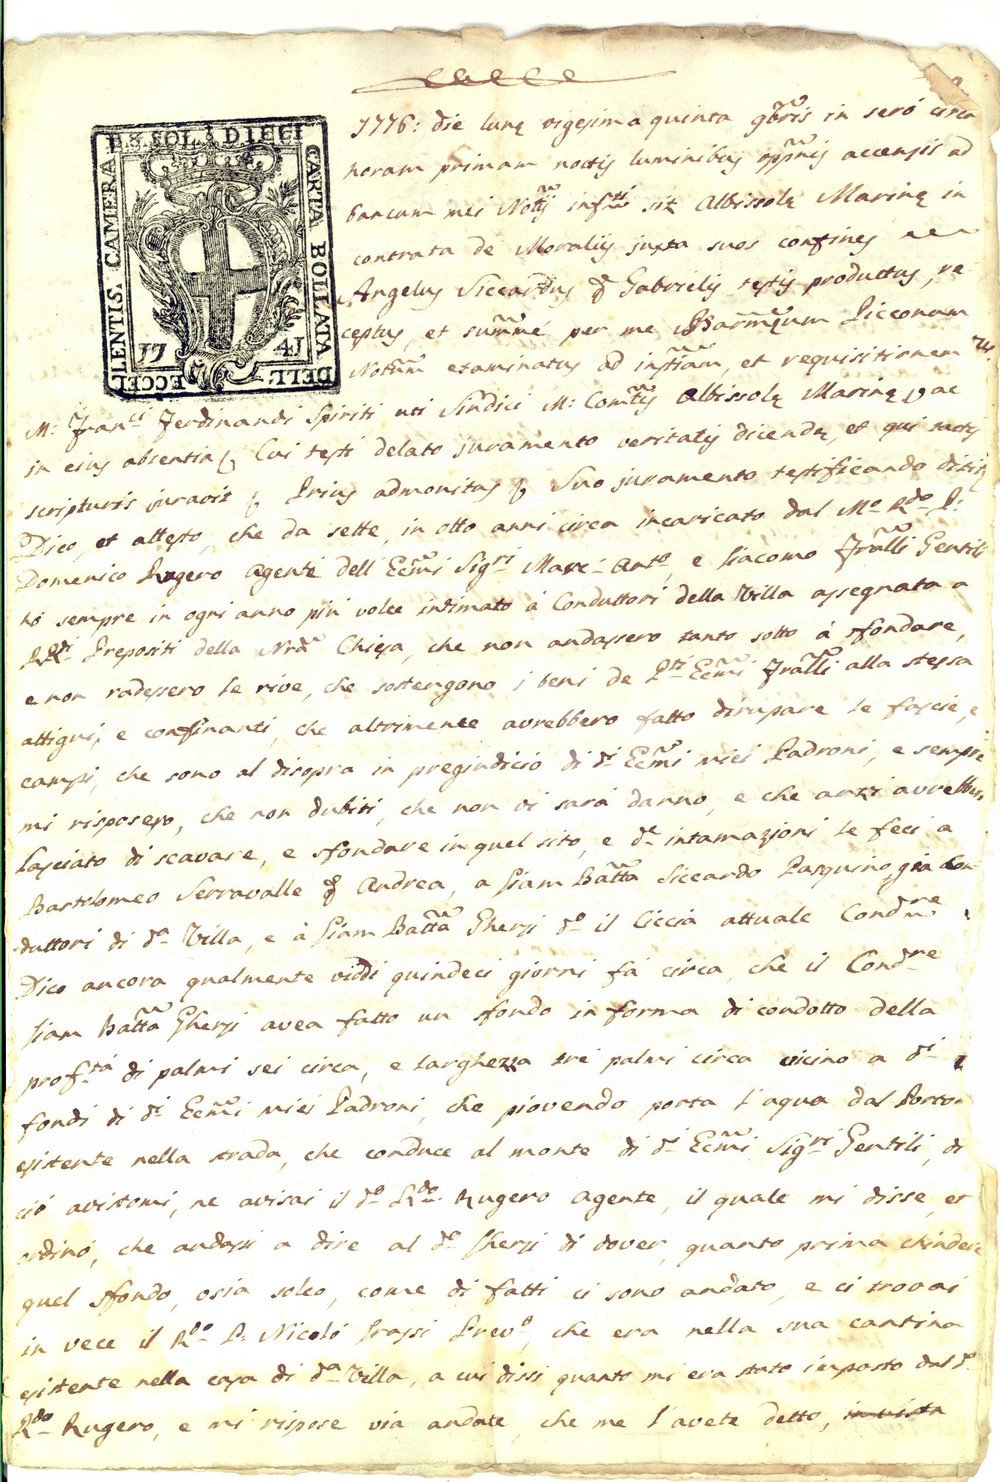 1776: die lunę vigesima quinta 9bris in seró circa
horam primam noctis luminibus oppnis accensis ad
bancum mei Notij infti sitę Albissolę Marinę in
contrata de Moraliis juxta suos confines
Angelus Siccardus q Gabrielis testis productus, re
ceptus, et summe per me Barmęum PiccONUM
Notum examinatus ad instiam, et requisitionem
DE SOL. DIECI CARTA BOLLATA DELL' ECCELLENTIS. CAMERA
17 41
M: Franci Ferdinandi Spiriti uti Sindici M: Comtis Albissolę Marinę, ac
in eius absentia, Cui testi delato juramento veritatis dicendę, et qui tactis
scripturis juravit, Prius admonitus, Suo juramento testificando dixit,
Dico, et attesto, che da sette, in otto anni circa incaricato dal Mo Rdo P:
Domenico Rugero agente dell Eccmi Sigri Marc-Anto, e Giacomo Fralli Gentili
hó sempre in ogni anno piú volte intimato á Conduttori della Villa assegnata a
RRdi Prepositi della Nra Chiesa, che non andassero tanto sotto á sfondare,
e non radessero le rive, che sostengono i beni de Pti Eccmi Fralli alla stessa
attigui, e confinanti, che altrimente avrebbero fatto dirupare le fascie, e
campi, che sono al disopra in pregiudicio di di Eccmi miei Padroni, e sempre
mi risposero, che non dubiti, che non vi sará danno, e che anzi avrebbero
lasciato di scavare, e sfondare in quel sito, e de intamazioni le feci a
Bartolomeo Serravalle q Andrea, a Giam Batta Siccardo Pasquino, giá Con-
duttori di da Villa, e á Giam Batta Ghersi do il Ciccia attuale Condre
Dico ancora qualmente viddi quindeci giorni fá circa, che il Condre
Giam Batta Ghersi avea fatto un sfondo in forma di condotto della
profta di palmi sei circa, e larghezza tre palmi circa vicino a di
fondi di di Eccmi miei Padroni, che piovendo porta l'aqua dal Porto
esistente nella strada, che conduce al monte di di Eccmi Sigri Gentili, di
ció avistomi, ne avisai il do Rdo Rugero Agente, il quale mi disse, et
ordinó, che andassi a dire al do Ghersi di dover, quanto prima chiudere
quel sfondo, osia solco, come di fatti ci sono andato, e ci trovai
in vece il Rdo P: Nicoló Grassi Prevo, che era nella sua cantina
esistente nella casa di da Villa, a cui dissi quanto mi era stato imposto dal do
Rdo Rugero, e mi rispose via andate, che me l'avete detto, in vista